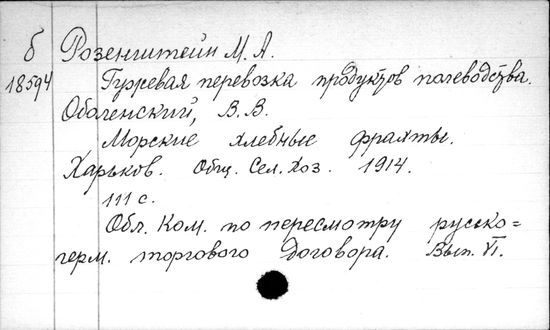 б Розенштейн М. А.
18594 Гужевая перевозка продуктов полеводства.
Оболенский, В. В.
Морские хлебные фрахты.
Харьков. Общ. Сел. Хоз. 1914.
111 с.
Обл. Ком. по пересмотру русско=
герм. торгового договора. Вып. VI.